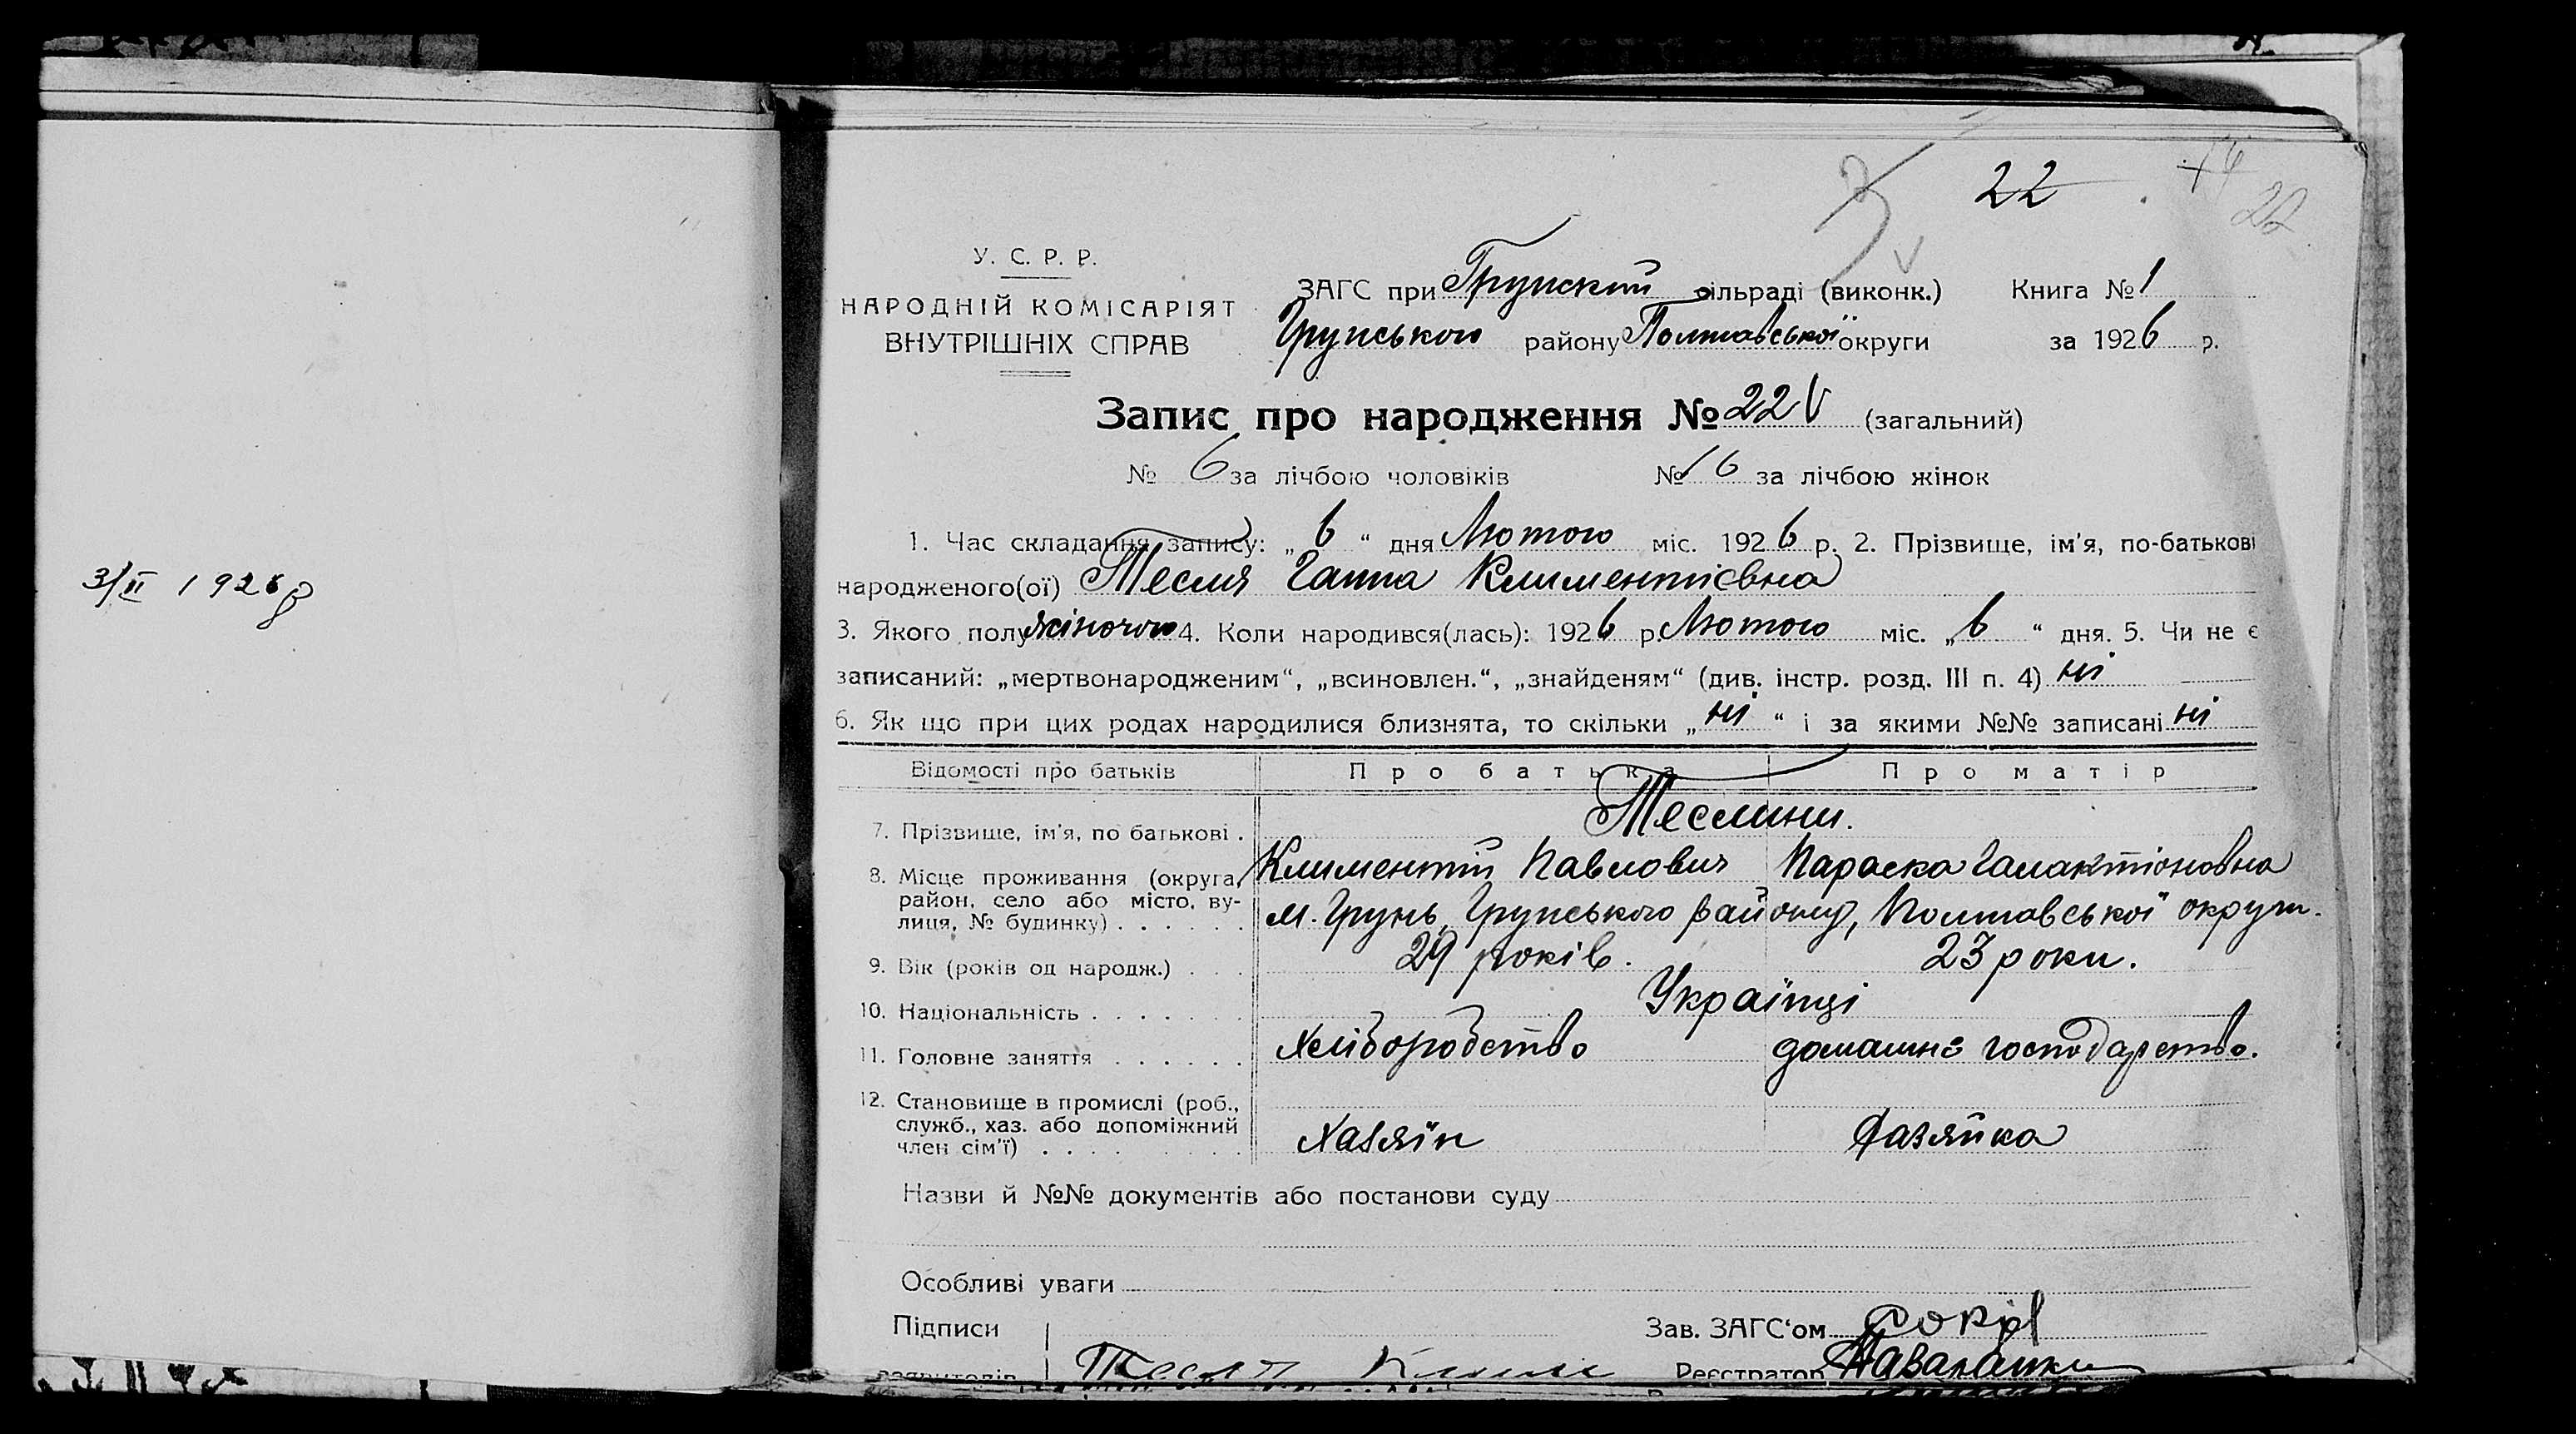 22
22
У. С. Р. Р.
НАРОДНІЙ КОМІСАРІЯТ
ВНУТРІШНІХ СПРАВ
ЗАГС при Грунский сільраді (виконк.) Книга № 1
Грунського району Полтавської округи за 1926 р.
Запис про народження № 22 V (загальний)
№ 6 за лічбою чоловіків № 16 за лічбою жінок
1. Час складання запису: „6“ дня Лютого міс. 1926 р. 2. Прізвище, ім'я, по-батькові
народженого(ої) Тесля Ганна Климентієвна
3/II 1926 р
3. Якого полу жіночого 4. Коли народився(лась): 1926 р. Лютого міс. „6“ дня. 5. Чи не є
записаний: „мертвонародженим“, „всиновлен.“, „знайденям“ (див. інстр. розд. III п. 4) ні
6. Як що при цих родах народилися близнята, то скільки „ні“ і за якими №№ записані ні
Відомості про батьків Про батька Про матір
7. Прізвище, ім'я, по батькові . Теслини.
Климентій Павлович Параска Галактіоновна
8. Місце проживання (округа, район, село або місто, ву-
лиця, № будинку) . . . . . . м. Грунь, Грунського району, Полтавської округи.
9. Вік (років од народж.) . . . 29 років. 23 роки.
10. Національність . . . . . . . Українці
11. Головне заняття . . . . . . Хліборобство домашнє господарство.
12. Становище в промислі (роб.,
служб., хаз. або допоміжний
член сім'ї) . . . . . . . . . Хазяїн Хазяйка
Назви й №№ документів або постанови суду
Особливі уваги
Підписи Зав. ЗАГС‘ом
Тесля Клим Реєстратор